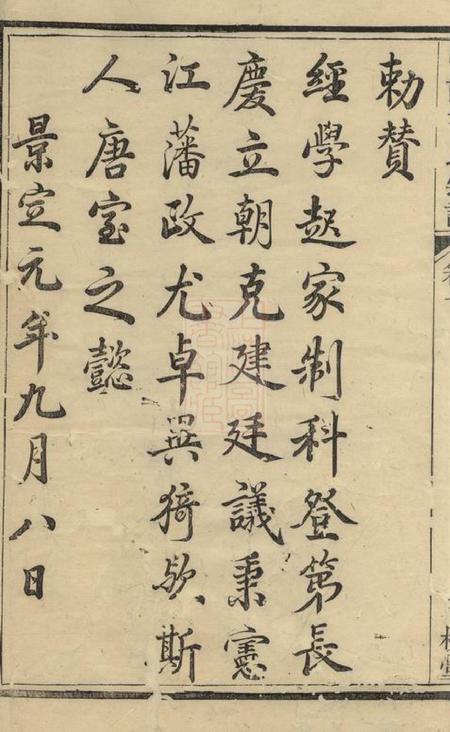 勅贊
經學起家制科登第長
慶立朝克建廷議秉憲
江藩政尤卓異猗歟斯
人唐室之懿
景定元年九月八日